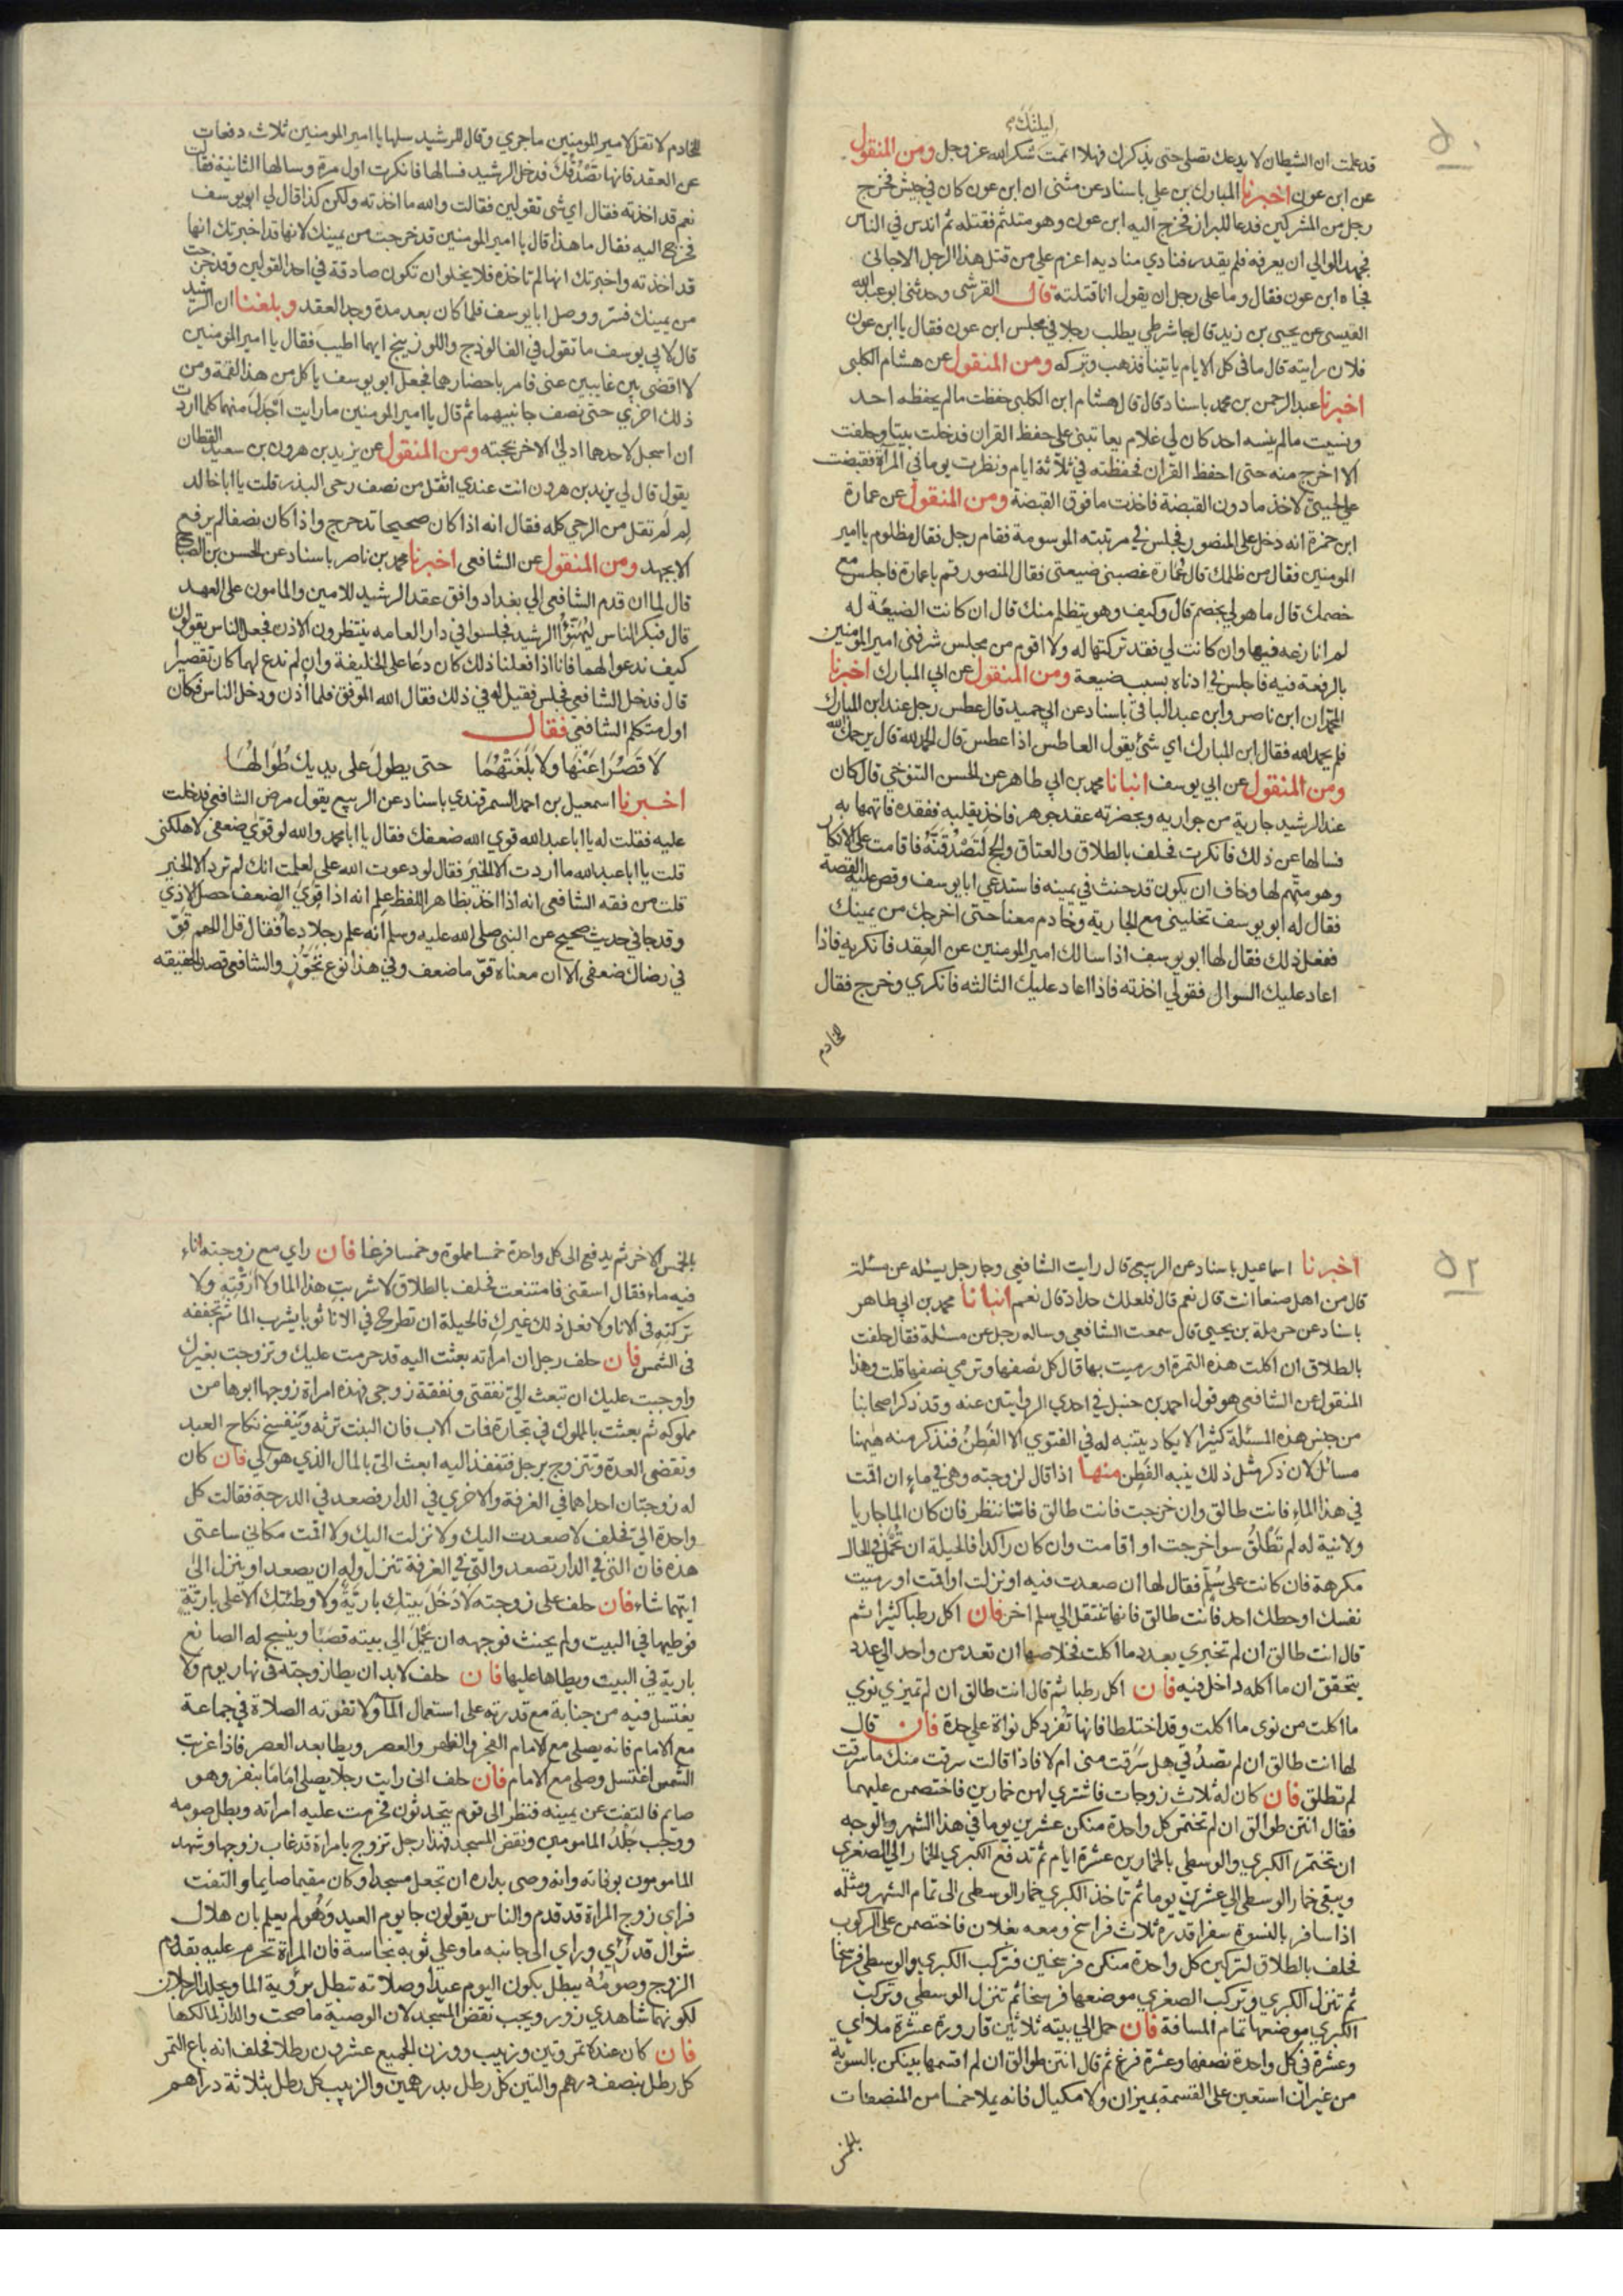 ليلتك
٥٠
قد علمت ان الشيطان لا يدعك تصلي حتى يذكرك فهلا اتممت شكر الله عز وجل ومن المنقول
عن ابن عون اخبرنا المبارك بن علي باسناد عن مثنى ان ابن عون كان في جيش فخرج
رجل من المشركين فدعا للبراز فخرج اليه ابن عون وهو متلثم فقتله ثم اندس في الناس
فجهد الوالي ان يعرفه فلم يقدر فنادي مناديه اعزم علي من قتل هذا الرجل الا جاني
فجاه ابن عون فقال وما على رجل ان يقول انا قتلته قال القرشي وحدثني ابو عبد الله
القيسي عن يحيى بن زيد قال جا شرطي يطلب رجلا في مجلس ابن عون فقال يا ابن عون
فلان رايته قال ما في كل الايام ياتينا فذهب وتركه ومن المنقول عن هشام الكلبي
اخبرنا عبد الرحمن بن محمد باسناد قال قال هشام ابن الكلبي حفظت ما لم يحفظه احد
ونسيت ما لم ينسه احد كان لي غلام يعاتبني على حفظ القران فدخلت بيتا وحلفت
الا اخرج منه حتى احفظ القران فحفظته في ثلاثة ايام ونظرت يوما في المراة فقبضت
علي لحيتي لاخذ ما دون القبضة فاخذت ما فوق القبضة ومن المنقول عن عمارة
ابن حمزة انه دخل على المنصور فجلس في مرتبته الموسومة فقام رجل فقال مظلوم يا امير
المومنين فقال من ظلمك قال عُمارة غصبني ضيعتي فقال المنصور قم يا عمارة فاجلس مع
خصمك قال ما هو لي بخصم قال وكيف وهو يتظلم منك قال ان كانت الضيعة له
لم انازعه فيها وان كانت لي فقد تركتها له ولا اقوم من مجلس شرفني امير المومنين
بالرفعة فيه فاجلس في ادناه بسبب ضيعة ومن المنقول عن ابي المبارك اخبرنا
المحمدان ابن ناصر وابن عبد الباقي باسناد عن ابي حميد قال عطس رجل عند ابن المبارك
فلم يحمد الله فقال ابن المبارك اي شئ يقول العاطس اذا عطس قال الحمد لله قال يرحمك الله
ومن المنقول عن ابي يوسف انبانا محمد بن ابي طاهر عن الحسن التنوخي قال كان
عند الرشيد جارية من جواريه وبحضرته عقد جوهر فاخذ يقلبه ففقده فاتهمها به
فسالها عن ذلك فانكرت فحلف بالطلاق والعتاق والحج لَتَصْدُقَنَّهُ فاقامت على الانكار
وهو متهم لها وخاف ان يكون قد حنث في يمينه فاستدعي ابا يوسف وقص عليه القصة
فقال له ابو يوسف تخليني مع الجارية وخادم معنا حتى اخرجك من يمينك
ففعل ذلك فقال لها ابو يوسف اذا سالك امير المومنين عن العِقد فانكريه فاذا
اعاد عليك السوال فقولي اخذته فاذا اعاد عليك الثالثه فانكري وخرج فقال
للخادم
للخادم لا تقل لامير المومنين ما جري وقال للرشيد سلها يا امير المومنين ثلاث دفعات
عن العقد فانها تَصْدُقُكَ فدخل الرشيد فسالها فانكرت اول مرة وسالها الثانية فقالت
نعم قد اخذته فقال اي شي تقولين فقالت والله ما اخذته ولكن كذا قال لي ابو يوسف
فخرج اليه فقال ما هذا قال يا امير المومنين قد خرجت من يمينك لانها قد اخبرتك انها
قد اخذته واخبرتك انها لم تاخذه فلا يخلو ان تكون صادقة في احد القولين وقد خرجت
من يمينك فسر ووصل ابا يوسف فلما كان بعد مدة وجد العقد وبلغنا ان الرشيد
قال لابي يوسف ما تقول في الفالوذج واللوزينج ايهما اطيب فقال يا امير المومنين
لا اقضي بين غايبين عني فامر باحضارهما فجعل ابو يوسف ياكل من هذا لقمة ومن
ذلك اخري حتى نصف جانبيهما ثم قال يا امير المومنين ما رايت اجدل منهما كلما اردت
ان اسجل لاحدهما ادلي الاخر بحجته ومن المنقول عن يزيد بن هرون بن سعيد القطان
يقول قال لي يزيد بن هرون انت عندي اثقل من نصف رحى البذر قلت يا ابا خالد
لِمَ لَمْ تقل من الرحي كله فقال انه اذا كان صحيحا تدحرج واذا كان نصفا لم يرفع
الا بجهد ومن المنقول عن الشافعي اخبرنا محمد بن ناصر باسناد عن الحسن بن الصباح
قال لما ان قدم الشافعي الي بغداد وافق عقد الرشيد للامين والمامون على العهد
قال فبكر الناس ليُهَنّوُا الرشيد فجلسوا في دار العامه ينتظرون الاذن فجعل الناس يقولون
كيف ندعو لهما فانا اذا فعلنا ذلك كان دعا على الخليفة وان لم ندع لهما كان تقصيرا
قال فدخل الشافعي فجلس فقيل له في ذلك فقال الله الموفق فلما أذن ودخل الناس فكان
اول متكلم الشافعي فقال
لاَ قَصُرَا عَنْهَا ولاَ بَلَغَتْهُمَا حتى يطولَ على يديك طُوَالُهَا
اخبرنا اسمعيل بن احمد السمرقندي باسناد عن الربيع يقول مرض الشافعي فدخلت
عليه فقلت له يا ابا عبد الله قوي الله ضعفك فقال يا ابا محمد والله لو قوي ضعفي لاهلكني
قلت يا ابا عبد الله ما اردت الا الخير فقال لو دعوت الله علي لعلمت انك لم ترد الا الخير
قلت من فقه الشافعي انه اذا اخذ بظاهر اللفظ علم انه اذا قوي الضعف حصل الاذي
وقد جا في حديث صحيح عن النبي صلى الله عليه وسلم أنه علم رجلا دعاً فقال قل اللهم قوّ
في رضاك ضعفي الا ان معناه قوّ ما ضعف وفي هذا نوع تَجَوُّزٍ والشافعي قصد الحقيقه
٥٢
اخبرنا اسماعيل باسناد عن الربيع قال رايت الشافعي وجا رجل يسئله عن مسئلة
قال من اهل صنعا انت قال نعم قال فلعلك حداد قال نعم انبانا محمد بن ابي طاهر
باسناد عن حرملة بن يحيى قال سمعت الشافعي وساله رجل عن مسئلة فقال حلفت
بالطلاق ان اكلت هذه التمرة او رميت بها قال كل نصفها وترمي نصفها قلت وهذا
المنقول عن الشافعي هو قول احمد بن حنبل في احدي الروايتين عنه وقد ذكر اصحابنا
من جنس هذه المسئلة كثيرا لا يكاد يتنبه له في الفتوي الا الفَطِنُ فنذكر منه هٰهنا
مسائل لان ذكر مثل ذلك ينبه الفَطِن منها اذا قال لزوجته وهي في ماء ان اقمت
في هذا الماء فانت طالق وان خرجت فانت طالق فاننا ننظر فان كان الما جاريا
ولا نية له لم تَطْلُقْ سوا خرجت او اقامت وان كان راكدا فالحيلة ان تُحْمَل في الحال
مكرهة فان كانت على سُلّم فقال لها ان صعدت فيه او نزلت او اقمت او رميت
نفسك او حطك احد فانت طالق فانها تنتقل الي سلم اخر فان اكل رطبا كثيرا ثم
قال انت طالق ان لم تخبري بعدد ما اكلت فخلاصها ان تعد من واحد الي عدد
يتحقق ان ما اكله داخل فيه فان اكل رطبا ثم قال انت طالق ان لم تميزي نوي
ما اكلت من نوي ما اكلت وقد اختلطا فانها تُفرد كل نواة علي حدة فان قال
لها انت طالق ان لم تصدُقي هل سَرَقتِ مني ام لا فاذا قالت سرقت منك ما سرقت
لم تطلق فان كان له ثلاث زوجات فاشتري لهن خمارين فاختصمن عليهما
فقال انتن طوالق ان لم تختمر كل واحدة منكن عشرين يوما في هذا الشهر والوجه
ان تختمر الكبري والوسطي بالخمارين عشرة ايام ثم تدفع الكبري الخمار الي الصغري
ويبقي خمار الوسطي الي عشرين يوما ثم تاخذ الكبري خمار الوسطي الي تمام الشهر ومثله
اذا سافر بالنسوة سفرا قدره ثلاث فراسخ ومعه بغلان فاختصمن على الركوب
فحلف بالطلاق لتركبن كل واحدة منكن فرسخين فتركب الكبري والوسطي فرسخا
ثم تنزل الكبري وتركب الصغري موضعها فرسخا ثم تنزل الوسطي وتركب
الكبري موضعها تمام المسافة فان حمل الي بيته ثلاثين قارورة عشرة ملاي
وعشرة في كل واحدة نصفها وعشرة فرغ ثم قال انتن طوالق ان لم اقسمها بينكن بالسوية
من غير ان استعين على القسمة بميزان ولا مكيال فانه يملا خمسا من المنصفات
بالخمس
بالخمس الاخر ثم يدفع الى كل واحدة خمسا مملوة وخمسا فرغا فان راي مع زوجته اناء
فيه ماء فقال اسقني فامتنعت فحلف بالطلاق لا شربت هذا الما ولا ارقتِهِ ولا
تركتِهِ في الانا ولا فعل ذلك غيرك فالحيلة ان تطرح في الانا ثوبا يشرب الما ثم تجففه
في الشمس فان حلف رجل ان امراته بعثت اليه قد حرمت عليك وتزوجت بغيرك
واوجبت عليك ان تبعث الي نفقتي ونفقة زوجي فهذه امراة زوجها ابوها من
مملوكه ثم بعثت بالمملوك في تجارة فمات الاب فان البنت ترثه ويَنفسخ نكاح العبد
وتقضي العدة وتتزوج برجل فتنفذ اليه ابعث الى بالمال الذي هو لي فان كان
له زوجتان احداهما في الغرفة والاخري في الدار فصعد في الدرجة فقالت كل
واحدة الىّ فحلف لا صعدت اليك ولا نزلت اليك ولا اقمت مكاني ساعتي
هذه فان التي في الدار تصعد والتي في الغرفة تنزل وله ان يصعد او ينزل الى
ايتهما شاء فان حلف على زوجته لا دَخَلَ بيتكِ باريَّةٌ ولا وطئتكِ الا على باريّة
فوطيها في البيت ولم يحنث فوجهه ان يُحْمَل الي بيته قصبًا وينسج له الصانع
بارية في البيت ويطاها عليها فان حلف لابد ان يطا زوجته في نهار يوم ولا
يغتسل فيه من جنابة مع قدرته على استعمال الما ولا تفوته الصلاة في جماعة
مع الامام فانه يصلي مع الامام الفجر والظهر والعصر ويطا بعد العصر فاذا غربت
الشمس اغتسل وصلى مع الامام فان حلف اني رايت رجلا يصلي امامًا بنفر وهو
صايم فالتفت عن يمينه فنظر الى قوم يتحدثون فحرمت عليه امراته وبطل صومه
ووجب جَلْدُ المامومين ونقض المسجد فهذا رجل تزوج بامراة قد غاب زوجها وشهد
المامومون بوفاته وانه وصى بداره ان تجعل مسجدا وكان مقيما صايما والتفت
فراي زوج المراة قد قدم والناس يقولون جا يوم العيد وَهُو لم يعلم بان هلال
شوال قد رُئي وراي الى جانبه ما وعلي ثوبه نجاسة فان المراة تحرم عليه بقدوم
الزوج وصومُهُ يبطل بكون اليوم عيدا وصلاته تبطل برؤية الما ويجلد الرجلان
لكونهما شاهدي زور ويجب نقض المسجد لان الوصية ما صحت والدار لمالكها
فان كان عنده تمر وتين وزبيب ووزن الجميع عشرون رطلا فحلف انه باع التمر
كل رطل بنصف درهم والتين كل رطل بدرهمين والزبيب كل رطل بثلاثة دراهم